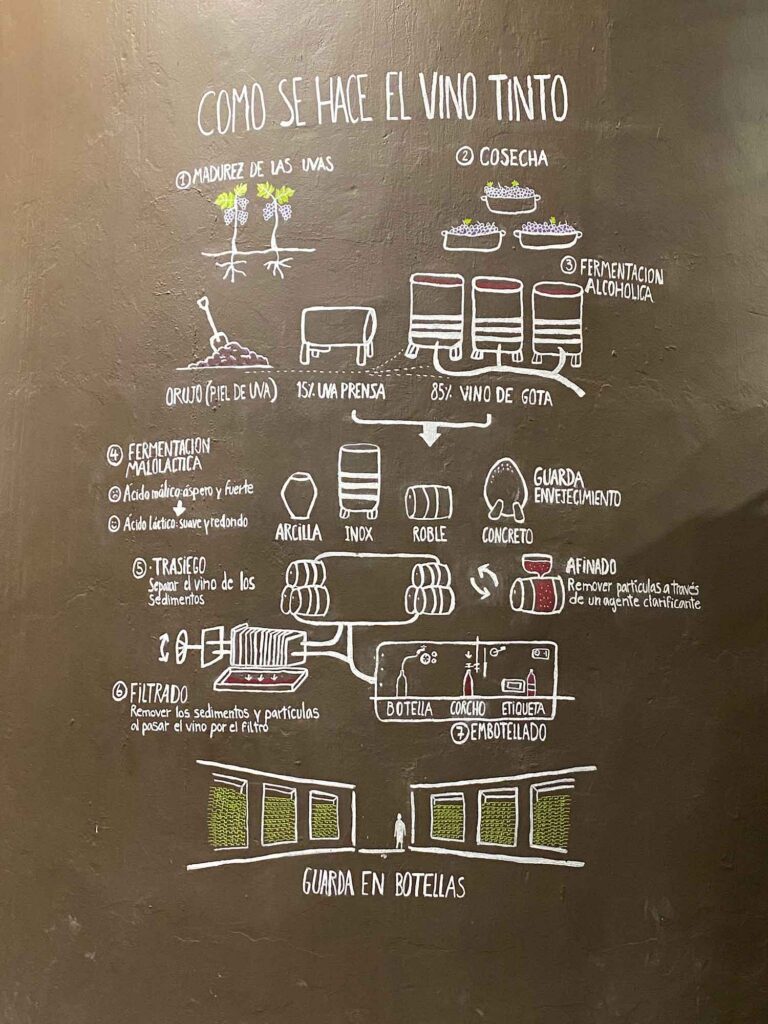 COMO SE HACE EL VINO TINTO
① MADUREZ DE LAS UVAS
② COSECHA
③ FERMENTACION
ALCOHOLICA
ORUJO (PIEL DE UVA)
15% UVA PRENSA
85% VINO DE GOTA
④ FERMENTACION
MALOLACTICA
Ácido málico: áspero y fuerte
Ácido láctico: suave y redondo
ARCILLA
INOX
ROBLE
CONCRETO
GUARDA
ENVEJECIMIENTO
⑤ · TRASIEGO
Separar el vino de los
sedimentos
AFINADO
Remover partículas a través
de un agente clarificante
⑥ FILTRADO
Remover los sedimentos y partículas
al pasar el vino por el filtro
BOTELLA
CORCHO
ETIQUETA
⑦ EMBOTELLADO
GUARDA EN BOTELLAS